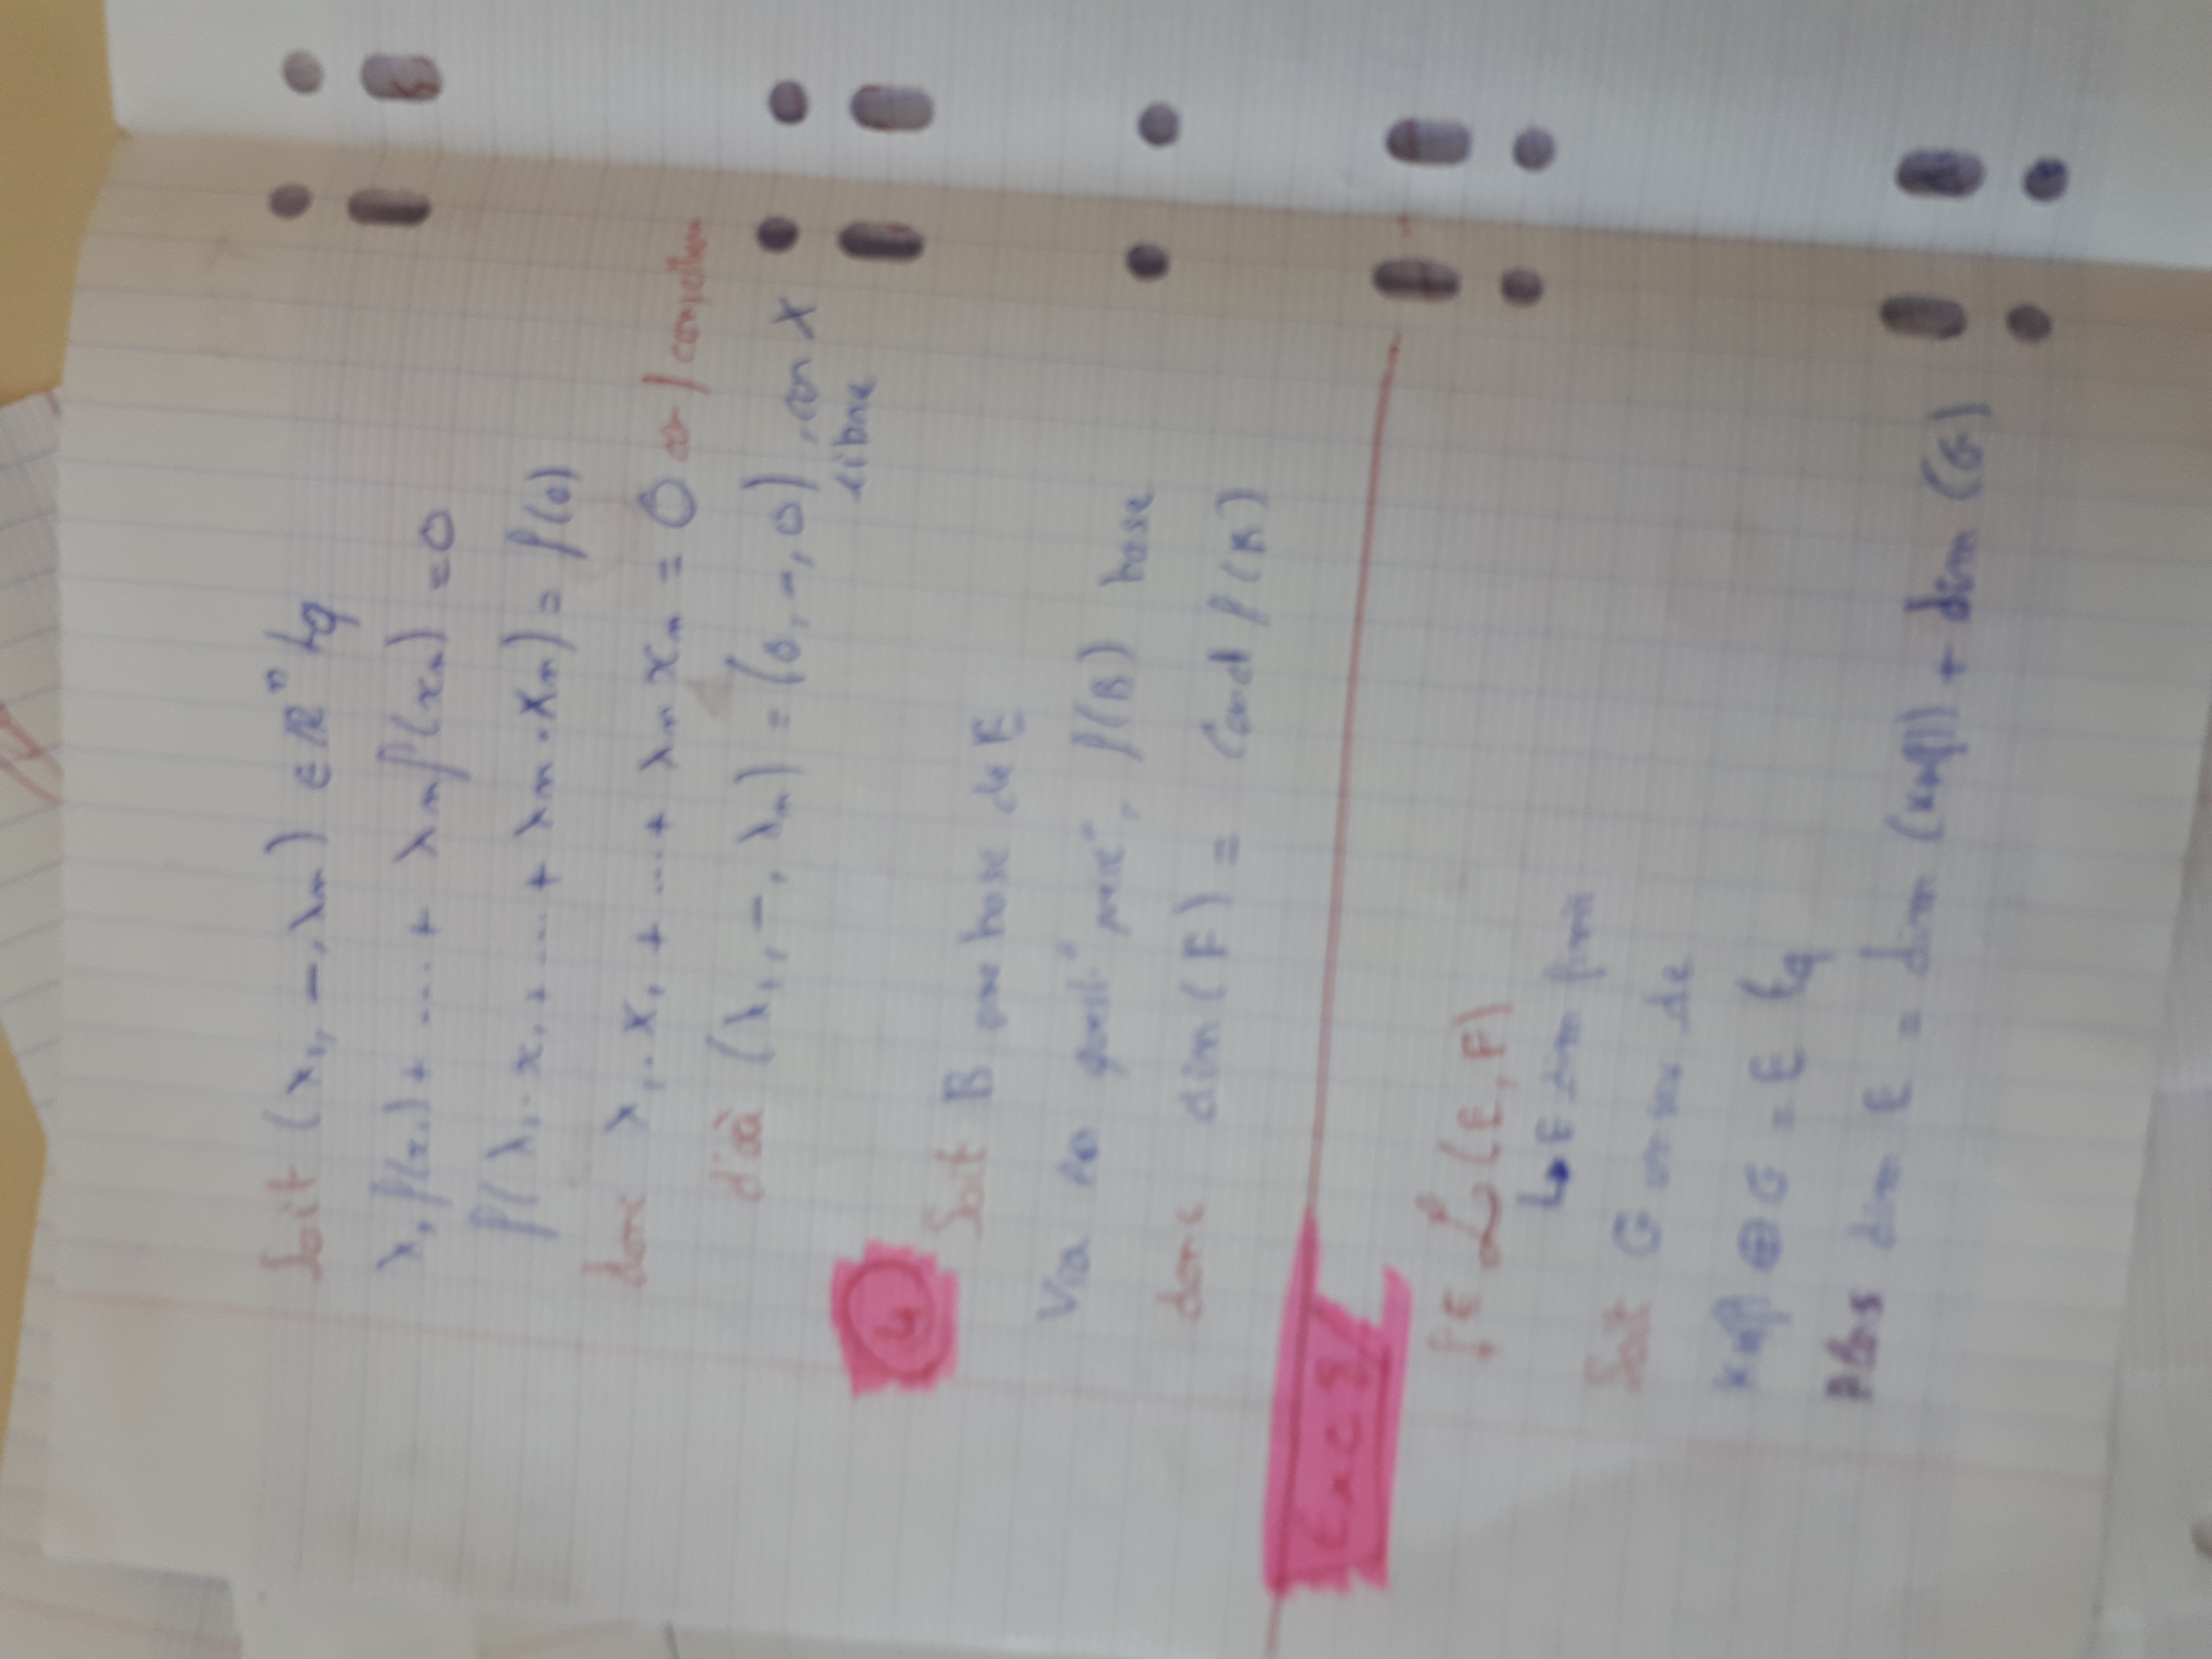 Soit (λ₁, –, λn) ∈ ℝⁿ tq
λ₁ f(x₁) + .... + λn f(xn) = 0
f(λ₁·x₁ + .... + λn·xn) = f(0)
donc λ₁·x₁ + .... + λn xn = 0 car f
d'où (λ₁, –, λn) = (0, –, 0), car X
libre
4 Soit B une base de E
Via la quest° prec, f(B) base
donc dim(F) = Card f(B)
Exc 2
f ∈ ℒ(E,F)
↳ E dim finie
Soit G un sev de
⊕ G = E tq
Alors dim E = dim (Kerf) + dim (G)